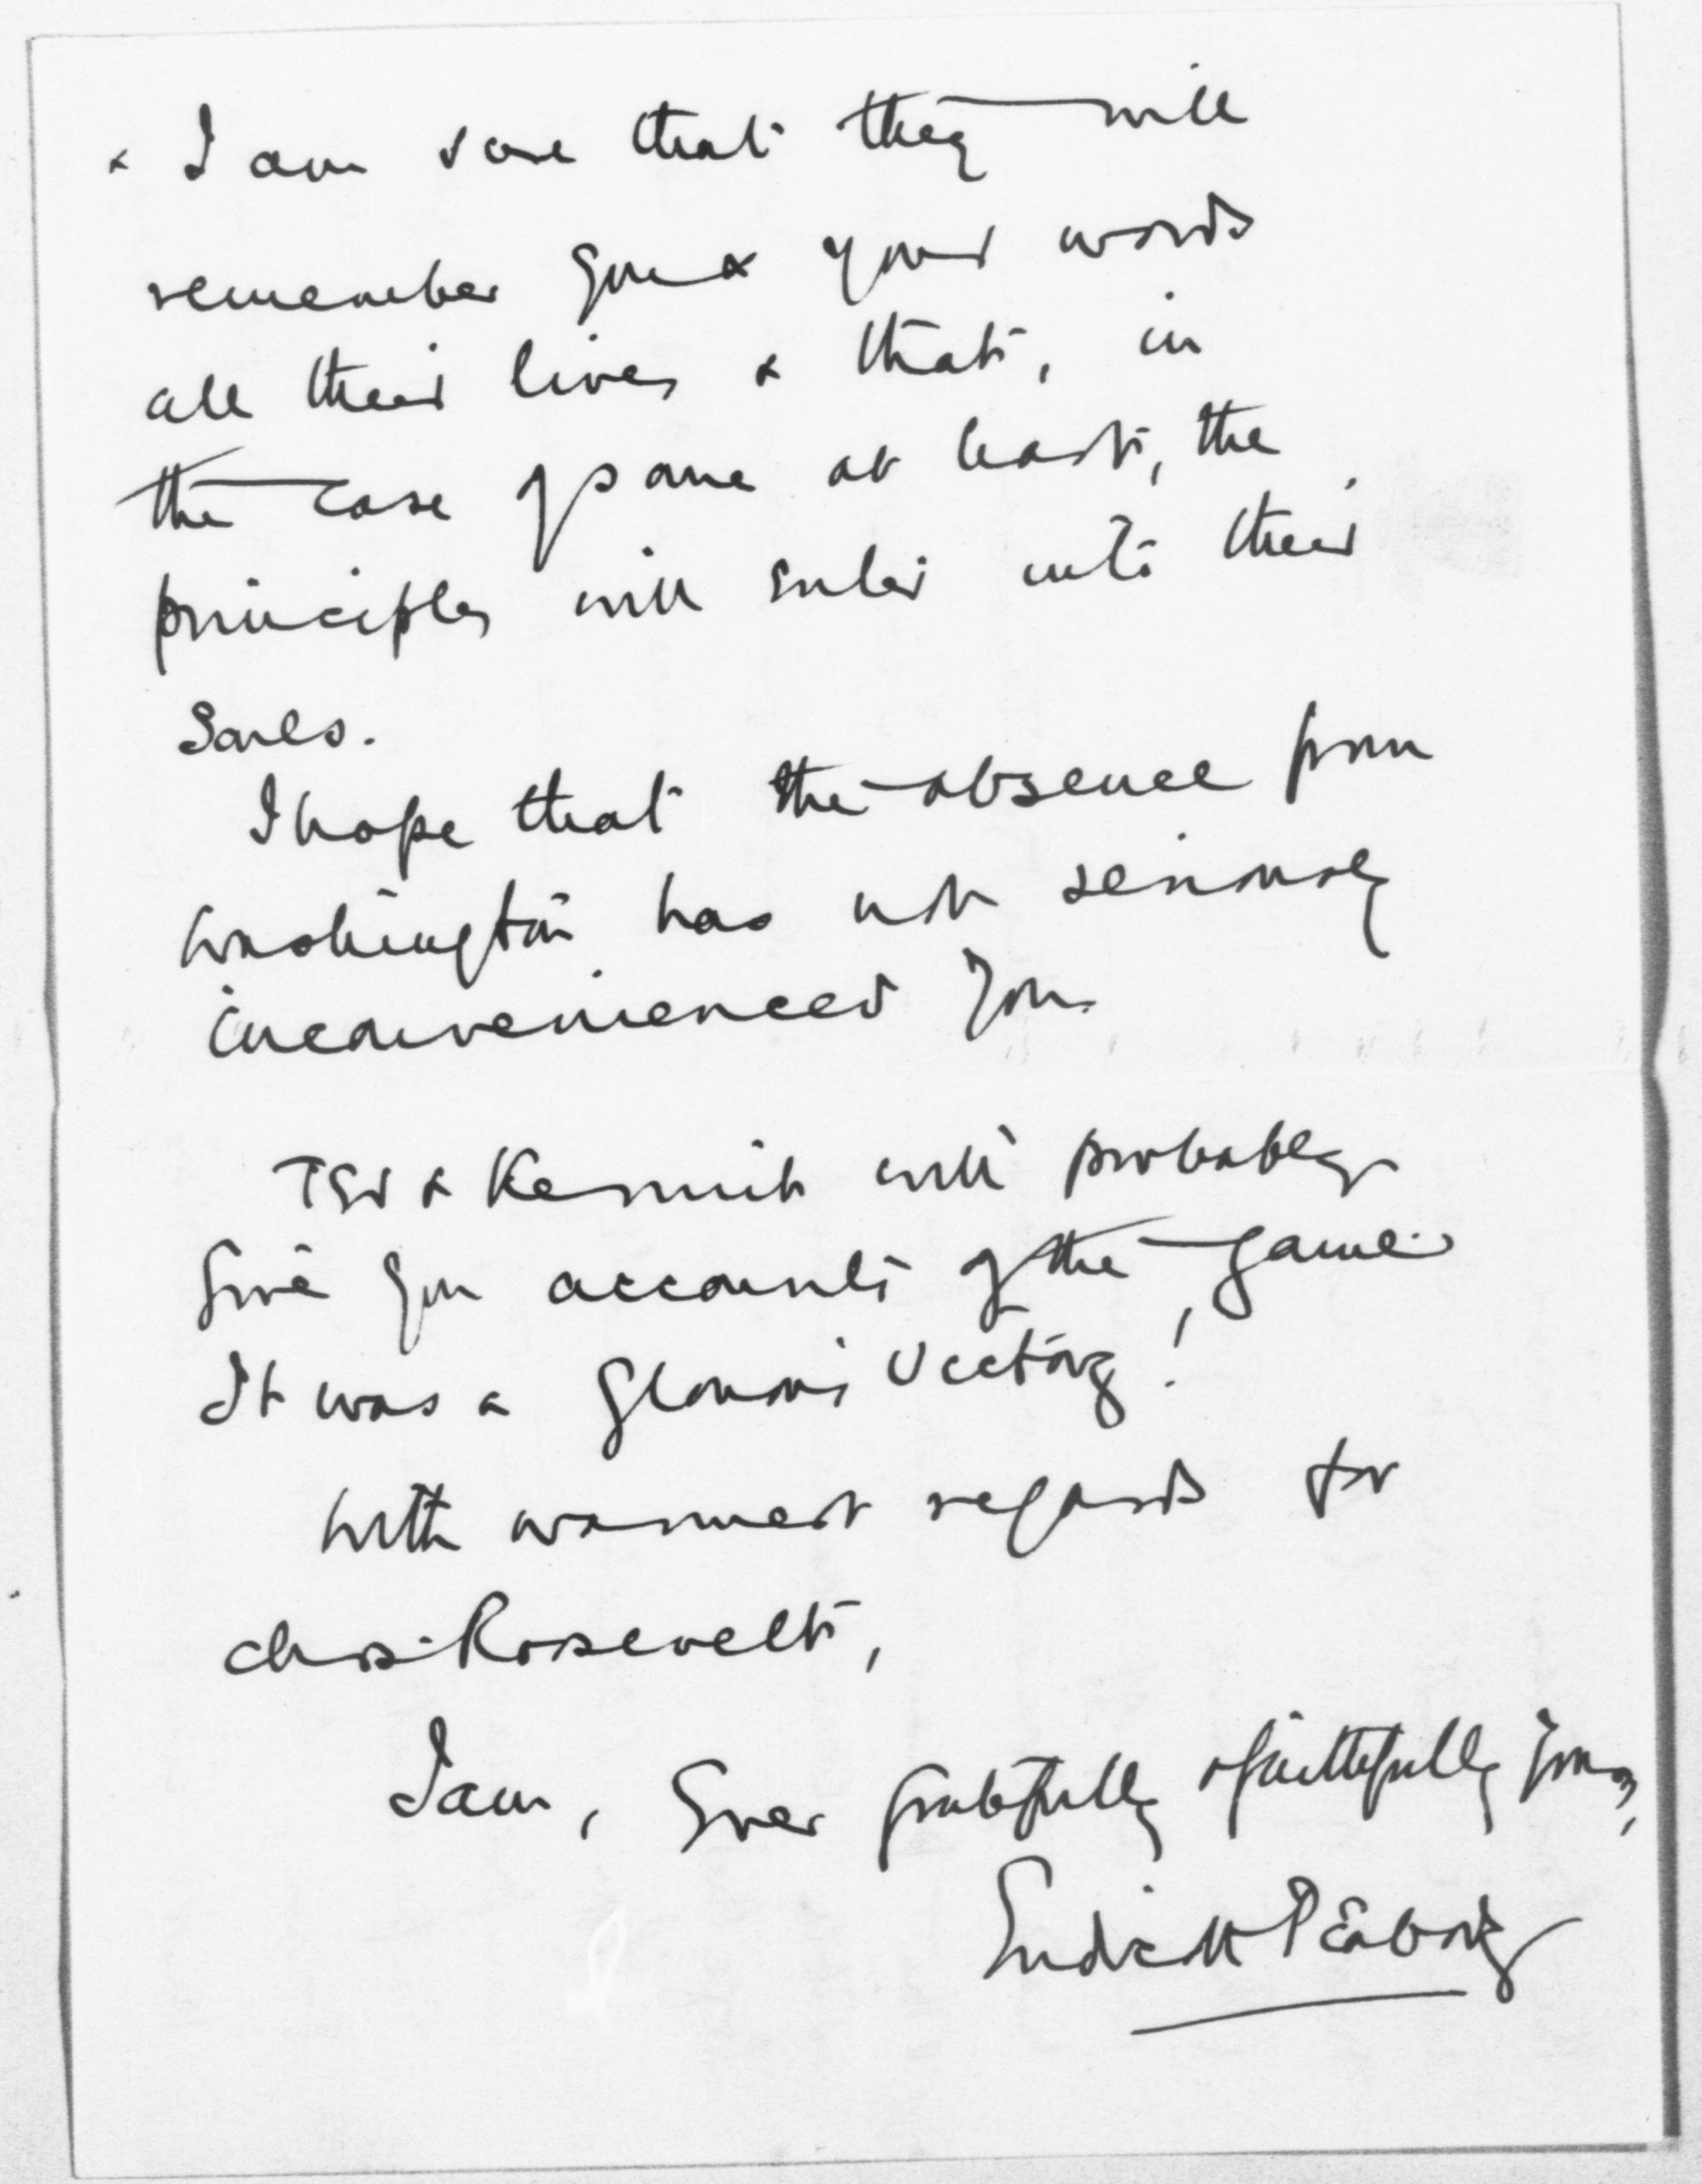 & I am sure that they will
remember you & your words
all their lives & that, in
the case of some at least, the
principles will enter into their
souls.
I hope that the absence from
Washington has not seriously
inconvenienced you.
Ted & Kermit will probably
give you accounts of the game.
It was a glorious victory!
With warmest regards for
Mrs. Roosevelt,
I am, Ever gratefully & faithfully yours,
Endicott Peabody